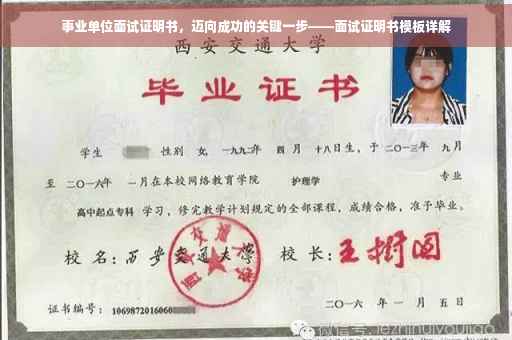 事业单位面试证明书，迈向成功的关键一步——面试证明书模板详解
西安交通大学
毕业证书
学生 性别 女, 一九九二年 四月 十八日生, 于二〇一三年 九月
至 二〇一六年 一月在本校网络教育学院 护理学 专业
高中起点专科 学习, 修完教学计划规定的全部课程, 成绩合格, 准予毕业。
校名: 西安交通大学 校长: 王树国
西安交通大学
证书编号: 1069872016060
二〇一六年 一月 五日
微信号: jezhinuiyoujiao